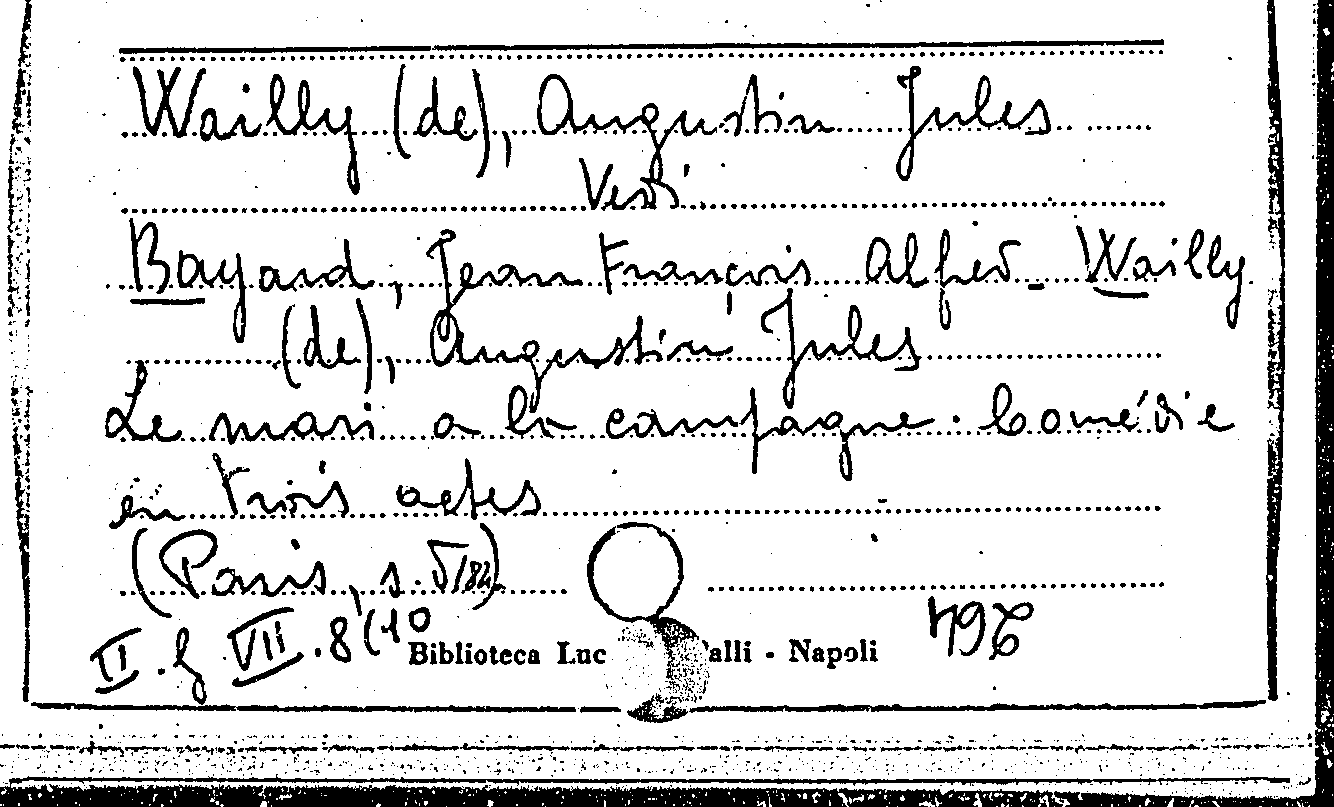 Wailly (de), Augustin Jules
Vedi
Bayard, Jean François Alfred - Wailly
(de), Augustin Jules
Le mari a la campagne. Comédie
en trois actes
(Paris, s.
II. VII. 8(10
Biblioteca Luc alli - Napoli